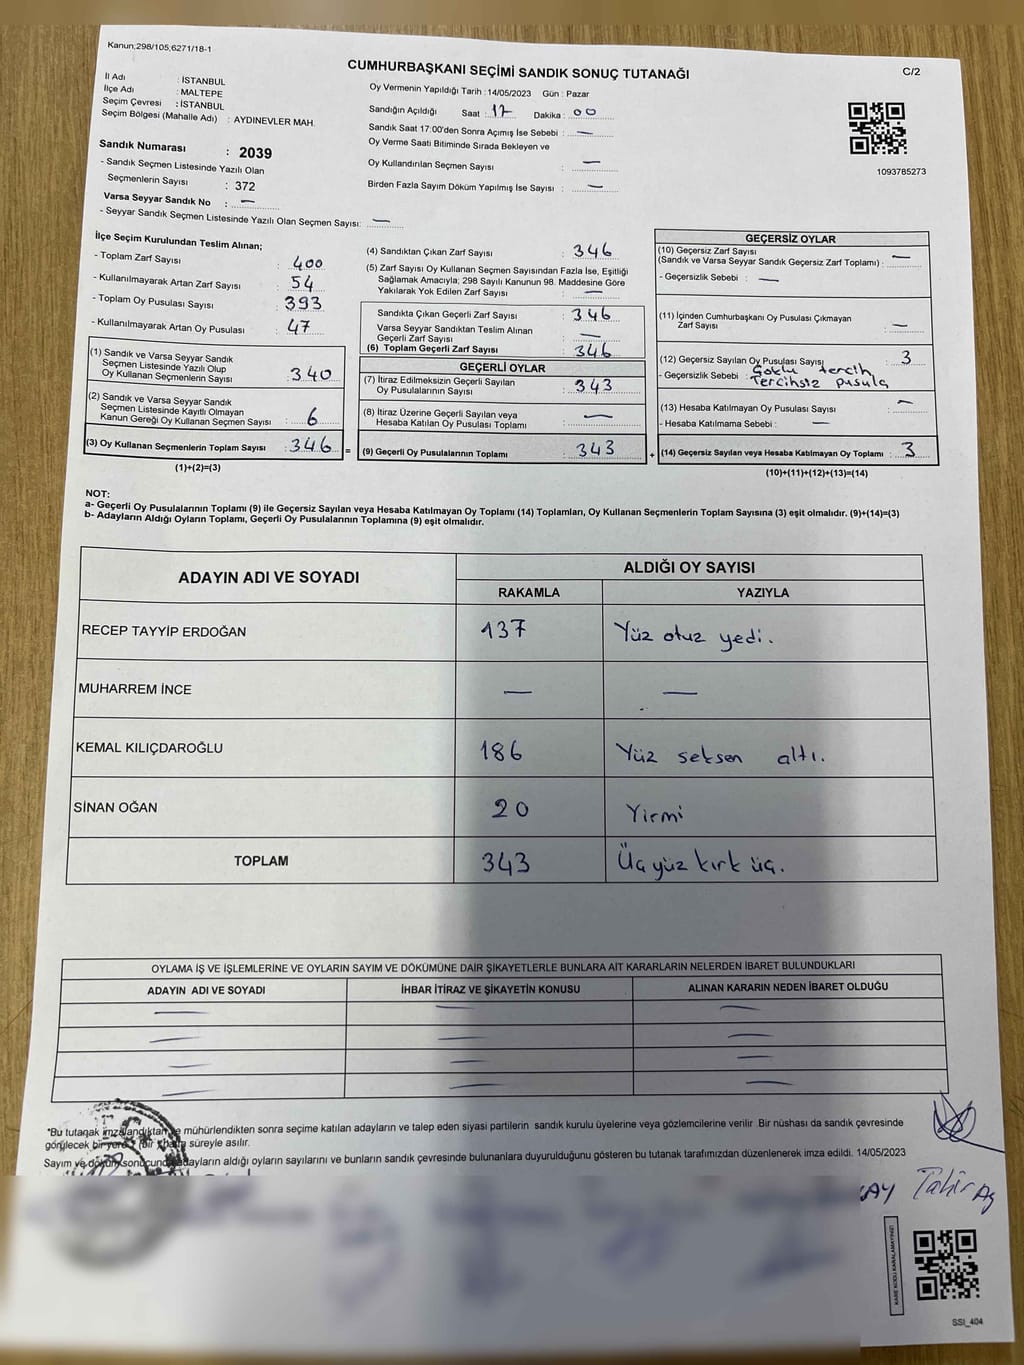 Kanun;298/105,6271/18-1
CUMHURBAŞKANI SEÇİMİ SANDIK SONUÇ TUTANAĞI
C/2
İl Adı : İSTANBUL
İlçe Adı : MALTEPE
Seçim Çevresi : İSTANBUL
Seçim Bölgesi (Mahalle Adı) : AYDINEVLER MAH.
Sandık Numarası : 2039
- Sandık Seçmen Listesinde Yazılı Olan
Seçmenlerin Sayısı : 372
Varsa Seyyar Sandık No : —
- Seyyar Sandık Seçmen Listesinde Yazılı Olan Seçmen Sayısı: —
Oy Vermenin Yapıldığı Tarih : 14/05/2023 Gün : Pazar
Sandığın Açıldığı Saat : 17 Dakika : 00
Sandık Saat 17:00'den Sonra Açımış İse Sebebi : —
Oy Verme Saati Bitiminde Sırada Bekleyen ve
Oy Kullandırılan Seçmen Sayısı : —
Birden Fazla Sayım Döküm Yapılmış İse Sayısı : —
1093785273
İlçe Seçim Kurulundan Teslim Alınan;
- Toplam Zarf Sayısı : 400
- Kullanılmayarak Artan Zarf Sayısı : 54
- Toplam Oy Pusulası Sayısı : 393
- Kullanılmayarak Artan Oy Pusulası : 47
(1) Sandık ve Varsa Seyyar Sandık
Seçmen Listesinde Yazılı Olup
Oy Kullanan Seçmenlerin Sayısı : 340
(2) Sandık ve Varsa Seyyar Sandık
Seçmen Listesinde Kayıtlı Olmayan
Kanun Gereği Oy Kullanan Seçmen Sayısı : 6
(3) Oy Kullanan Seçmenlerin Toplam Sayısı : 346
(1)+(2)=(3)
(4) Sandıktan Çıkan Zarf Sayısı : 346
(5) Zarf Sayısı Oy Kullanan Seçmen Sayısından Fazla İse, Eşitliği
Sağlamak Amacıyla; 298 Sayılı Kanunun 98. Maddesine Göre
Yakılarak Yok Edilen Zarf Sayısı : —
Sandıkta Çıkan Geçerli Zarf Sayısı : 346
Varsa Seyyar Sandıktan Teslim Alınan
Geçerli Zarf Sayısı : —
(6) Toplam Geçerli Zarf Sayısı : 346
GEÇERLİ OYLAR
(7) İtiraz Edilmeksizin Geçerli Sayılan
Oy Pusulalarının Sayısı : 343
(8) İtiraz Üzerine Geçerli Sayılan veya
Hesaba Katılan Oy Pusulası Toplamı : —
= (9) Geçerli Oy Pusulalarının Toplamı : 343
GEÇERSİZ OYLAR
(10) Geçersiz Zarf Sayısı
(Sandık ve Varsa Seyyar Sandık Geçersiz Zarf Toplamı) : —
- Geçersizlik Sebebi : —
(11) İçinden Cumhurbaşkanı Oy Pusulası Çıkmayan
Zarf Sayısı : —
(12) Geçersiz Sayılan Oy Pusulası Sayısı : 3
- Geçersizlik Sebebi : Çoklu tercih,
Tercihsiz pusula
(13) Hesaba Katılmayan Oy Pusulası Sayısı : —
- Hesaba Katılmama Sebebi : —
+ (14) Geçersiz Sayılan veya Hesaba Katılmayan Oy Toplamı : 3
(10)+(11)+(12)+(13)=(14)
NOT:
a- Geçerli Oy Pusulalarının Toplamı (9) ile Geçersiz Sayılan veya Hesaba Katılmayan Oy Toplamı (14) Toplamları, Oy Kullanan Seçmenlerin Toplam Sayısına (3) eşit olmalıdır. (9)+(14)=(3)
b- Adayların Aldığı Oyların Toplamı, Geçerli Oy Pusulalarının Toplamına (9) eşit olmalıdır.
ADAYIN ADI VE SOYADI ALDIĞI OY SAYISI
RAKAMLA YAZIYLA
RECEP TAYYİP ERDOĞAN 137 Yüz otuz yedi.
MUHARREM İNCE — —
KEMAL KILIÇDAROĞLU 186 Yüz seksen altı.
SİNAN OĞAN 20 Yirmi
TOPLAM 343 Üçyüz kırk üç.
OYLAMA İŞ VE İŞLEMLERİNE VE OYLARIN SAYIM VE DÖKÜMÜNE DAİR ŞİKAYETLERLE BUNLARA AİT KARARLARIN NELERDEN İBARET BULUNDUKLARI
ADAYIN ADI VE SOYADI İHBAR İTİRAZ VE ŞİKAYETİN KONUSU ALINAN KARARIN NEDEN İBARET OLDUĞU
— — —
— — —
— — —
— — —
*Bu tutanak imzalandıktan ve mühürlendikten sonra seçime katılan adayların ve talep eden siyasi partilerin sandık kurulu üyelerine veya gözlemcilerine verilir. Bir nüshası da sandık çevresinde
görülecek bir yere 1 (bir) hafta süreyle asılır.
Sayım ve döküm sonucunda adayların aldığı oyların sayılarını ve bunların sandık çevresinde bulunanlara duyurulduğunu gösteren bu tutanak tarafımızdan düzenlenerek imza edildi. 14/05/2023
Tahir
KARE KODU KARALAMAYINIZ!
SSI_404